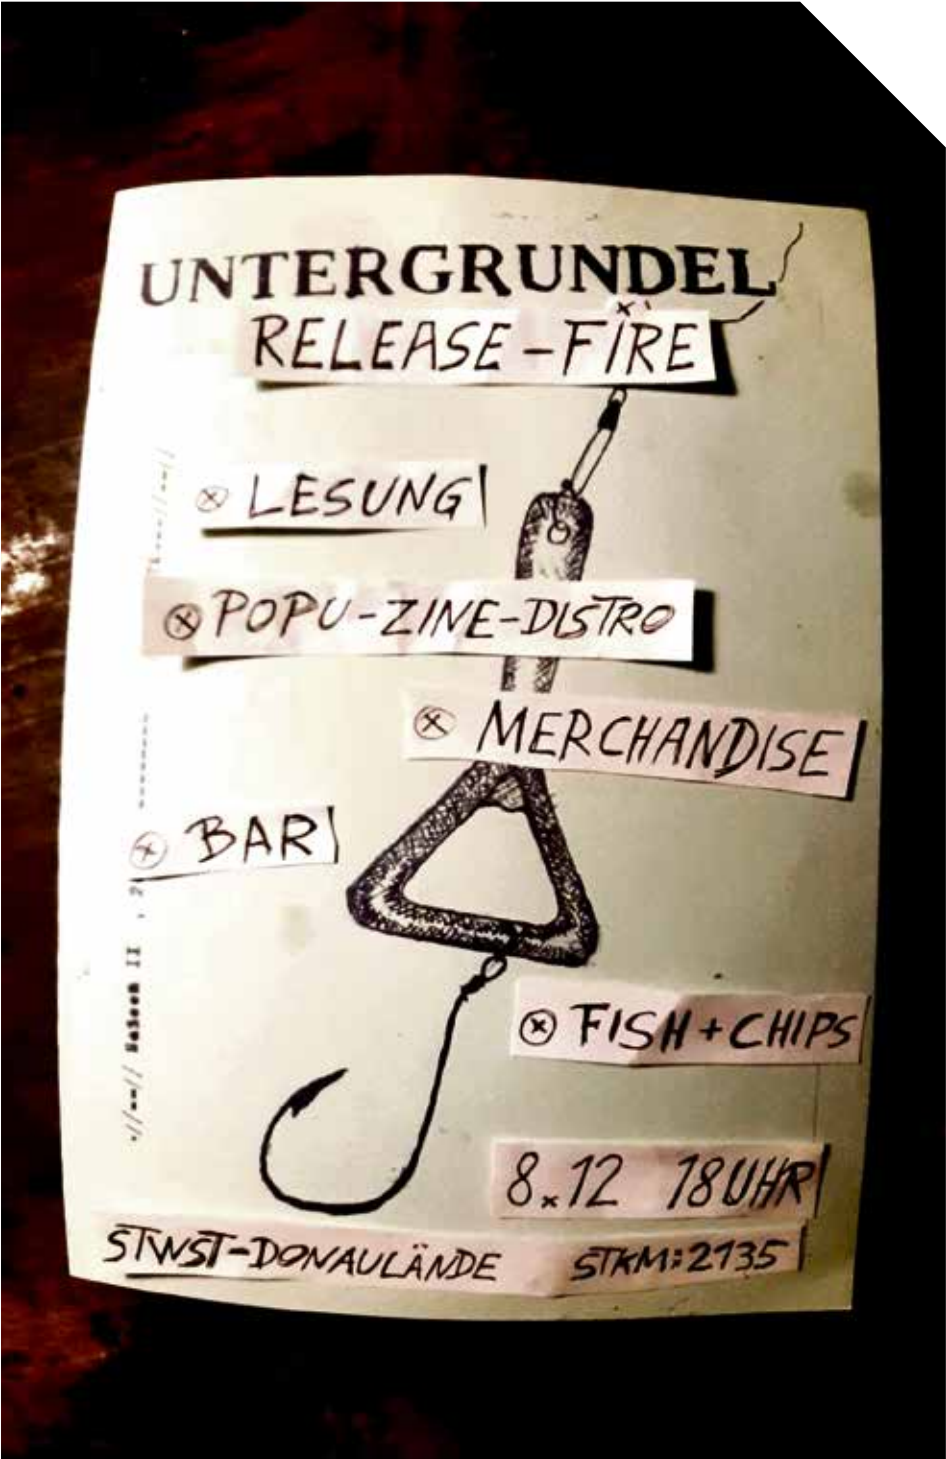 UNTERGRUNDEL
RELEASE-FÏRE
ⓧ LESUNG
ⓧ POPU-ZINE-DISTRO
ⓧ MERCHANDISE
ⓧ BAR
ⓧ FISH + CHIPS
8.12 18UHR
STWST-DONAULÄNDE STKM:2135